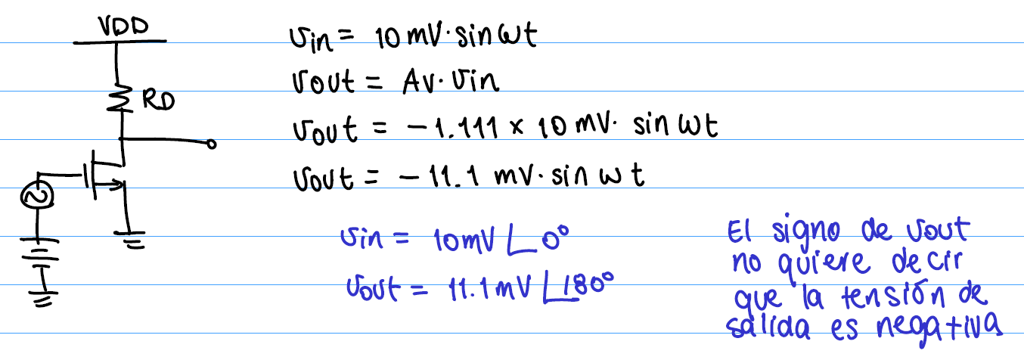 VDD
RD
vin = 10 mV · sin ωt
vout = Av · vin
vout = -1.111 × 10 mV · sin ωt
vout = -11.1 mV · sin ωt
vin = 10mV ∠0°
vout = 11.1mV ∠180°
El signo de vout
no quiere decir
que la tensión de
salida es negativa